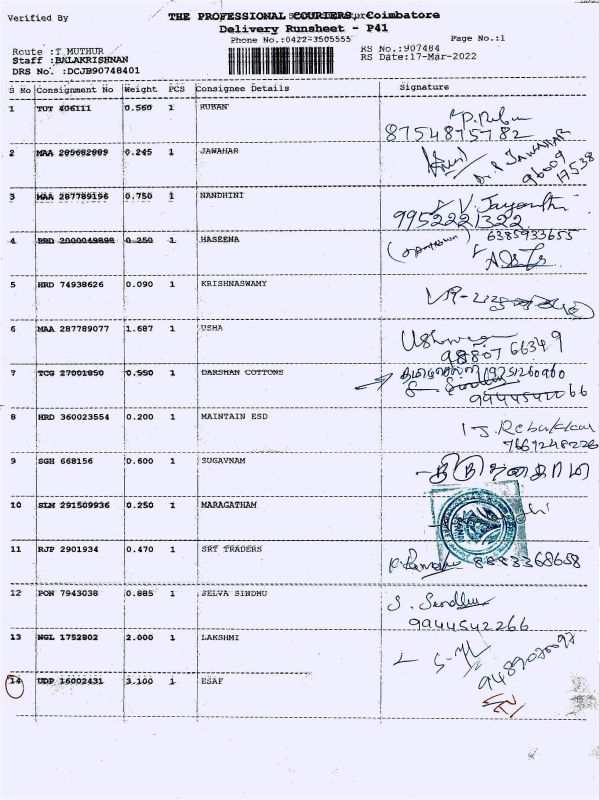 Verified By THE PROFESSIONAL COURIERS, Coimbatore
Delivery Runsheet - P41
Phone No.:0422-3505555 Page No.:1
Route :T MUTHUR RS No.:907484
Staff :BALAKRISHNAN RS Date:17-Mar-2022
DRS No. :DCJB90748401
S No Consignment No Weight PCS Consignee Details Signature
1 TUT 406111 0.560 1 RUBAN
8754875782
2 MAA 0.245 1 JAWAHAR
JAWAHAR
96009
17538
3 MAA 287789196 0.750 1 NANDHINI
V. Jayanthi
9952221322
4 0.250 1 HASEENA
6385933655
5 HRD 74938626 0.090 1 KRISHNASWAMY
6 MAA 287789077 1.687 1 USHA
98807 66349
7 TCG 27001850 0.550 1 DARSHAN COTTONS
8 HRD 360023554 0.200 1 MAINTAIN ESD
9 SGH 668156 0.600 1 SUGAVNAM
10 SLM 291509936 0.250 1 MARAGATHAM
11 RJP 2901934 0.470 1 SRT TRADERS
8883368658
12 PON 7943038 0.885 1 SELVA SINDHU
S. Sindhu
9944542266
13 NGL 1752802 2.000 1 LAKSHMI
14 UDP 16002431 3.100 1 ESAF